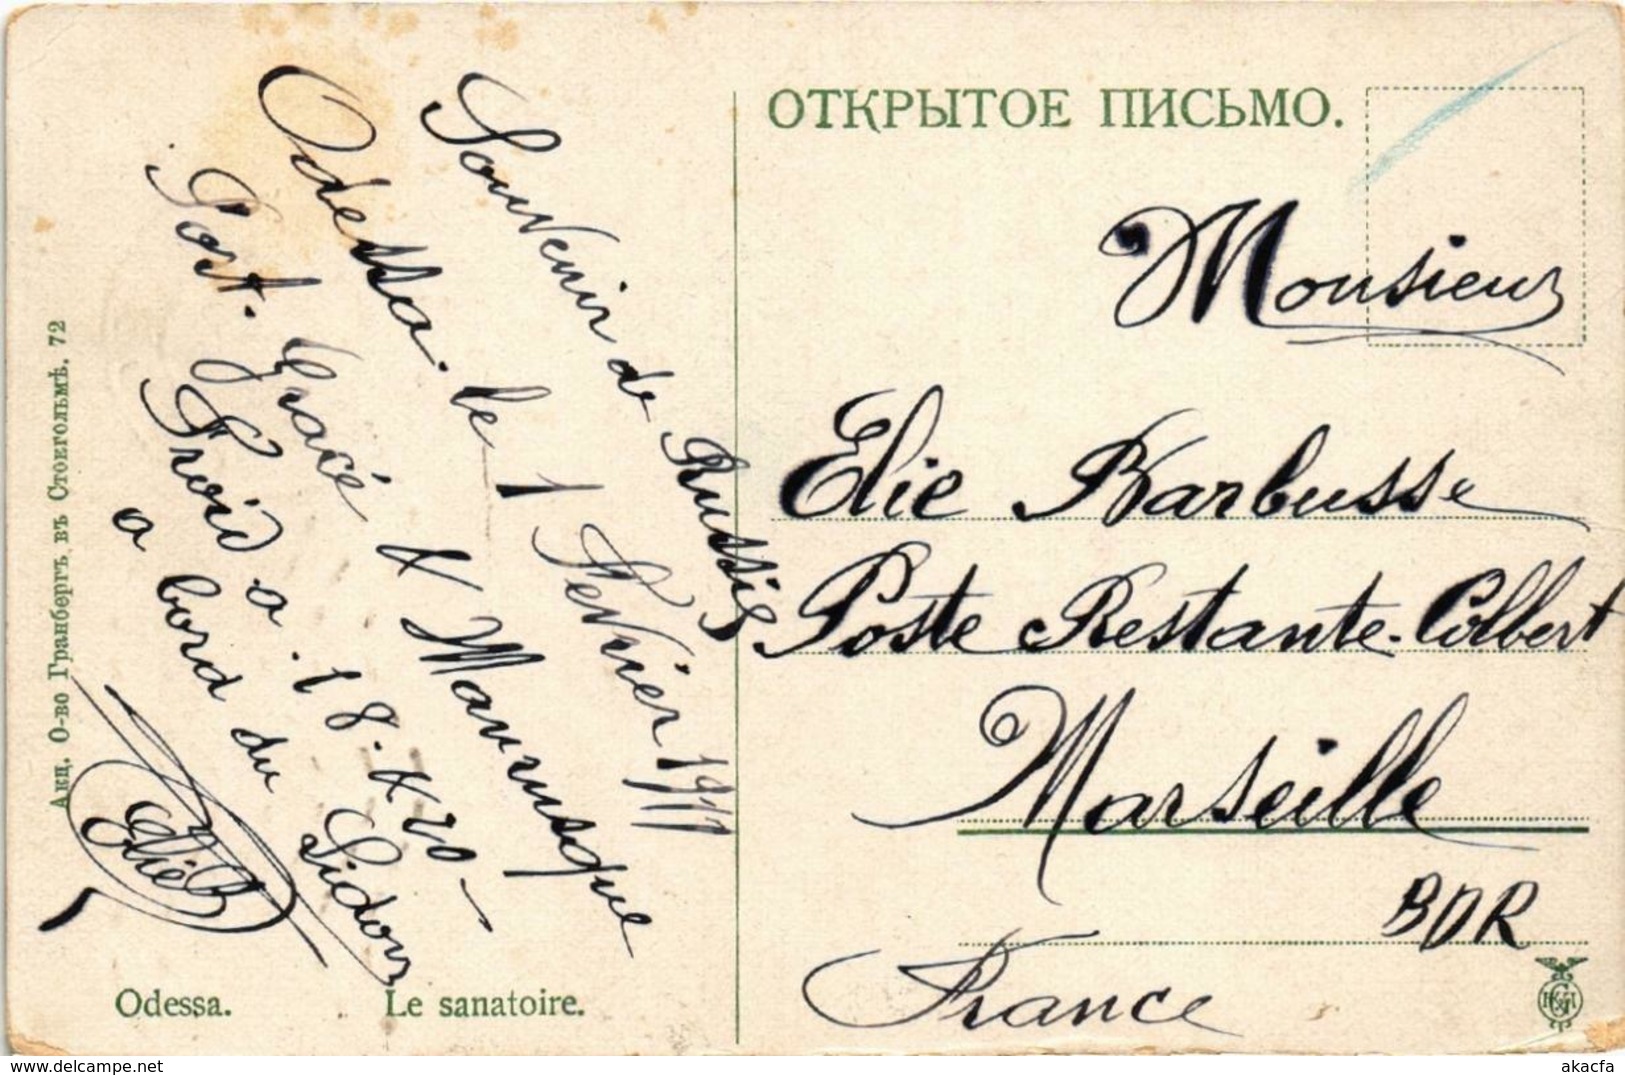 Souvenir de Russie
Odessa. le 1 Fevrier 1911
Port. Glacé &
Froid a. 18.
a bord du Sidon
Elie B
ОТКРЫТОЕ ПИСЬМО.
Monsieur
Elie Barbusse
Poste Restante. Colbert
Marseille
BDR
France
Акц. О-во Гранбергъ въ Стокгольмѣ. 72
Odessa. Le sanatoire.
akacfa